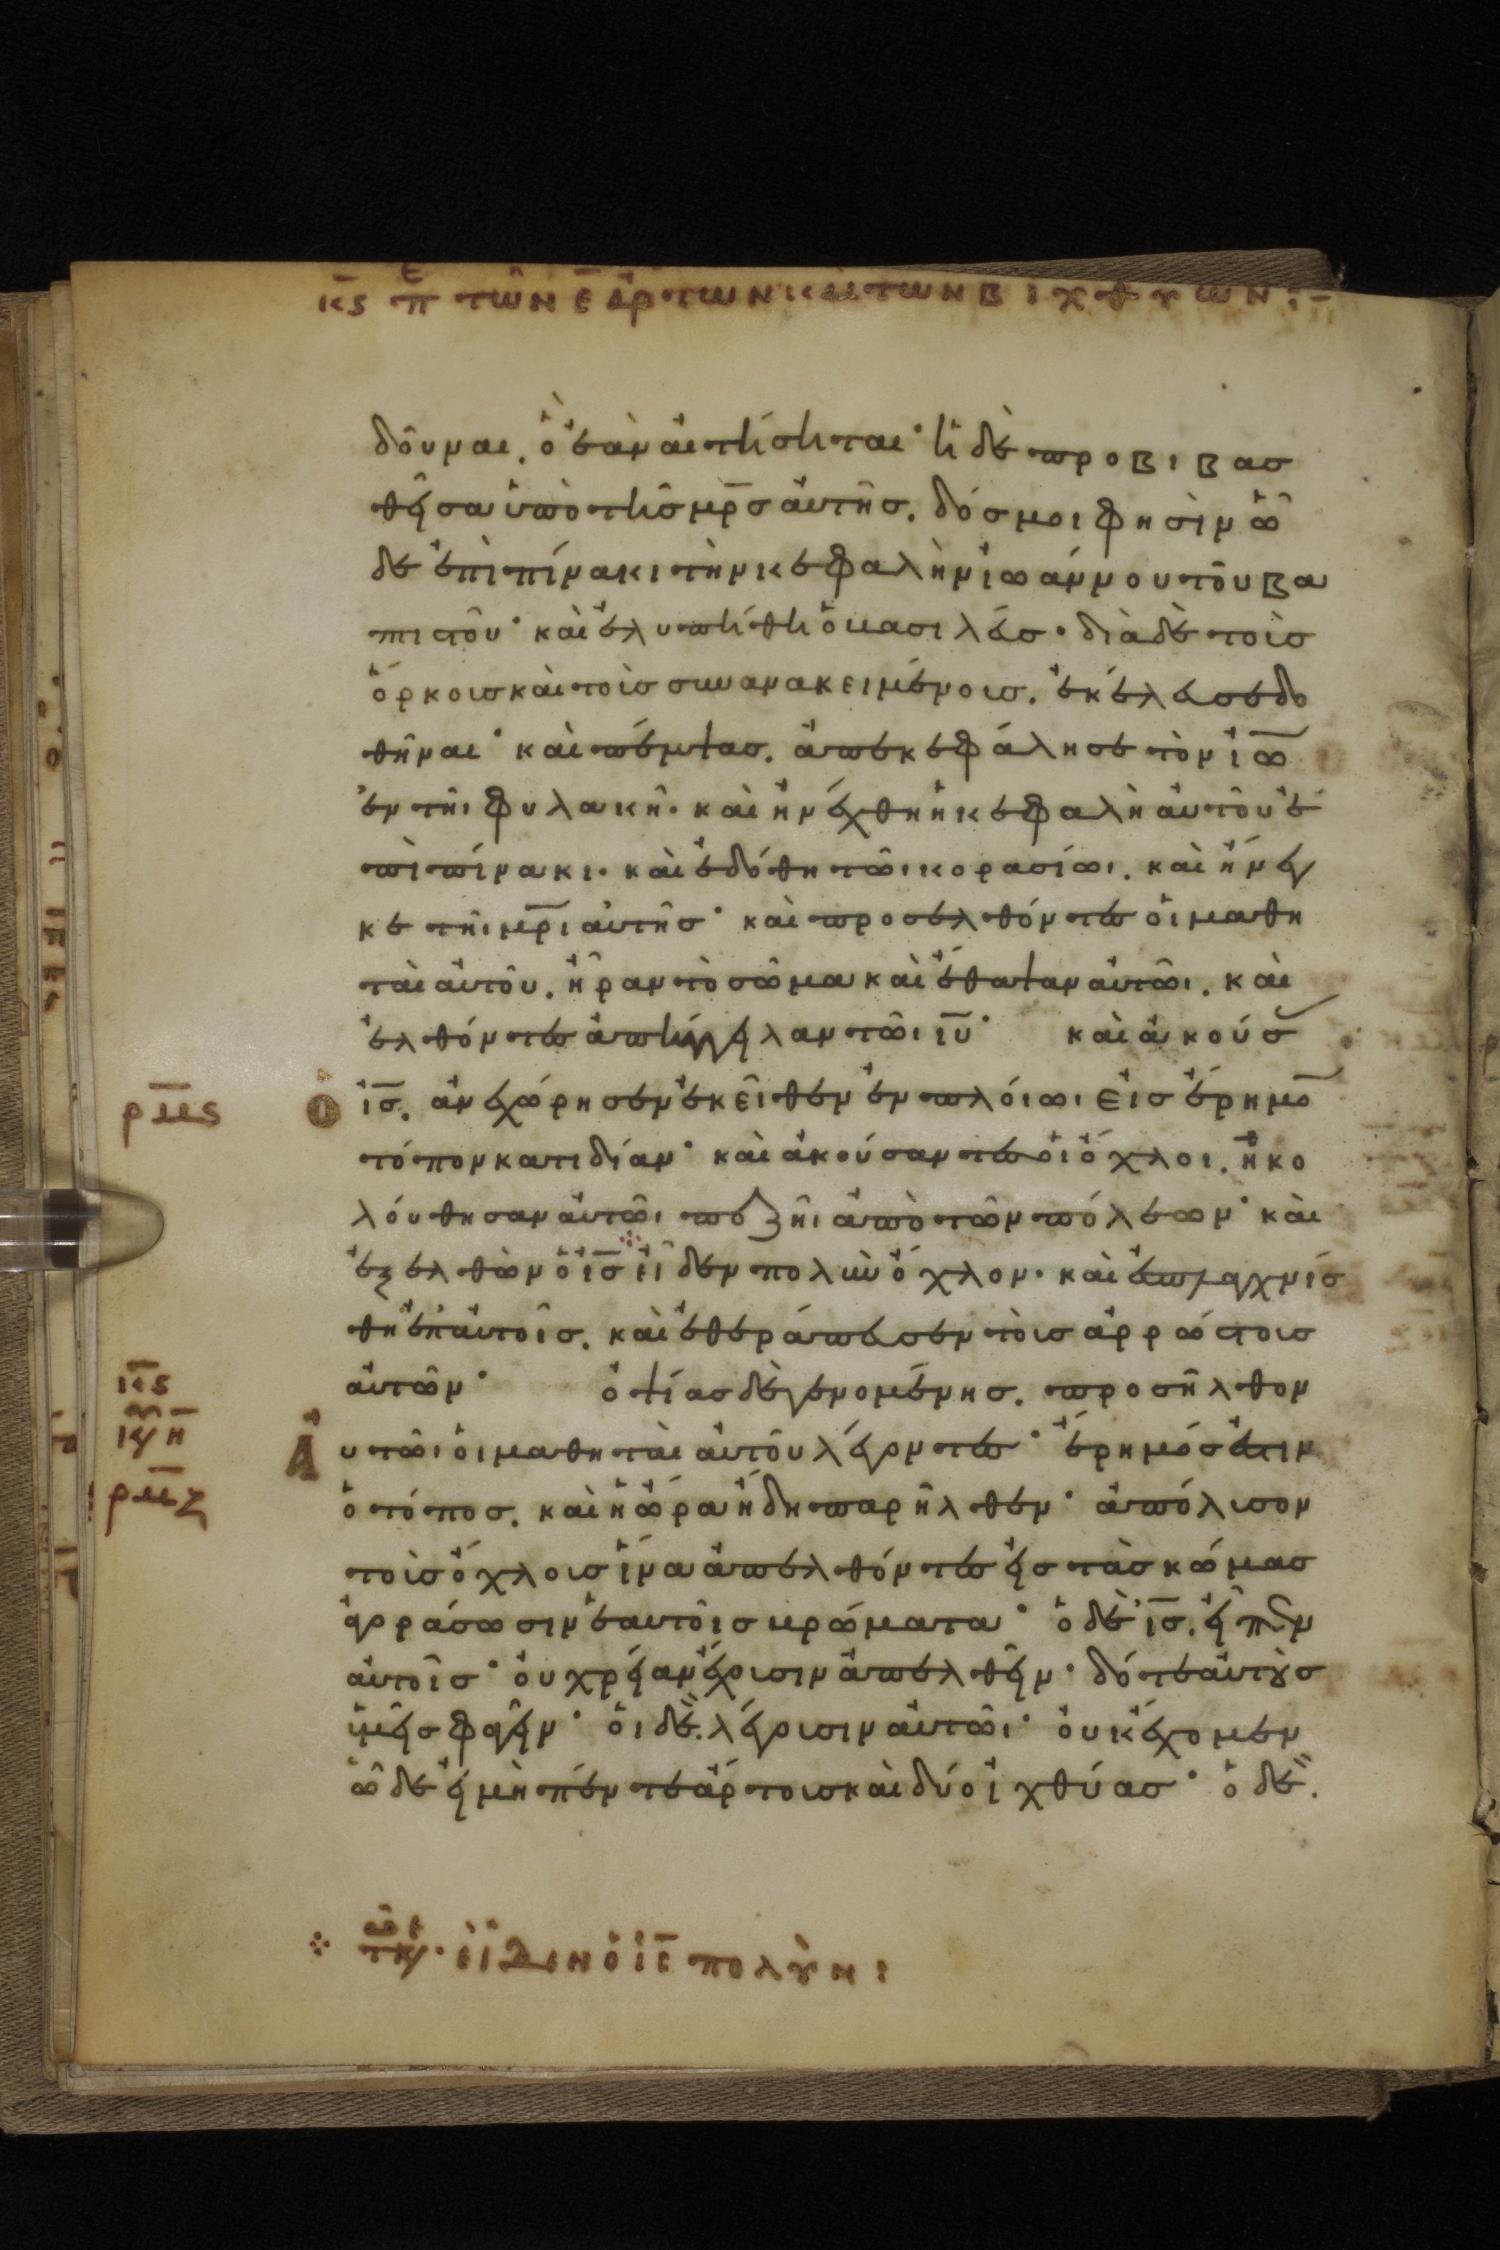 κϛ πε τῶν ε ἄρτων καὶ των β ιχθυων :
δοῦναι. ὃ ἐὰν αἰτήσηται· ἡ δὲ προβιβασ
θεῖσα ὑπὸ τῆς μρ̅σ αὐτῆς. δός μοι φησὶν ὧ
δε ἐπὶ πίνακι τὴν κεφαλὴν ἰωάννου τοῦ βα
πτιστοῦ· καὶ ἐλυπήθη ὁ βασιλεύς· διὰ δὲ τοὺς
ὅρκους καὶ τοὺς συνανακειμένους. ἐκέλευσε δο
θῆναι· καὶ πέμψας. ἀπεκεφάλησε τὸν ἰω̅
ἐν τῆι φυλακῆ· καὶ ἠνέχθη ἡ κεφαλὴ αὐτοῦ ἐ
πὶ πίνακι· καὶ ἐδόθη τῶι κορασίωι. καὶ ἤνεγ
κε τῆι μρ̅ι αὐτῆς· καὶ προσελθόντες οἱ μαθη
ταὶ αὐτοῦ. ἦραν τὸ σῶμα καὶ ἔθαψαν αὐτῶι. καὶ
ἐλθόντες ἀπήγγειλαν τῶι ιυ̅· καὶ ἀκούσ
ὁ ισ̅. ἀνεχώρησεν ἐκεῖθεν ἐν πλόιωι εἰς ἔρημο̅
ρμϛ
τόπον κατιδίαν· καὶ ἀκούσαντες οἱ ὄχλοι. ἠκο
λούθησαν αὐτῶι πεζῆι ἀπὸ τῶν πόλεων· καὶ
ἐξελθὼν ὁ ισ̅ εἶδεν πολὺν ὄχλον· καὶ ἐσπλαγχνίσ
θη ἐπ αὐτοῖς. καὶ ἐθεράπευσεν τοὺς ἀρρώστους
αὐτῶν· ὀψίας δὲ γενομένης. προσῆλθον
κϛ
κυ η
Αὐτῶι οἱ μαθηταὶ αὐτοῦ λέγοντες· ἔρημός ἐστιν
ρμζ
ὁ τόπος. καὶ ἡ ὥρα ἤδη παρῆλθεν· ἀπόλυσον
τοὺς ὄχλους ἵνα ἀπελθόντες εἰς τὰς κώμας
ἀγοράσωσιν ἑαυτοῖς βρώματα· ὁ δὲ ισ̅. εἶπεν
αὐτοῖς· οὐ χρείαν ἔχουσιν ἀπελθεῖν· δότε αὐτοῖς
ὑμεῖς φαγεῖν· οἱ δὲ. λέγουσιν αὐτῶι· οὐκ ἔχομεν
ὧδε εἰ μὴ πέντε ἄρτους καὶ δύο ἰχθύας· ὁ δὲ.
τω κ ε κυ· εἶδεν ὁ ισ̅ πολὺν :